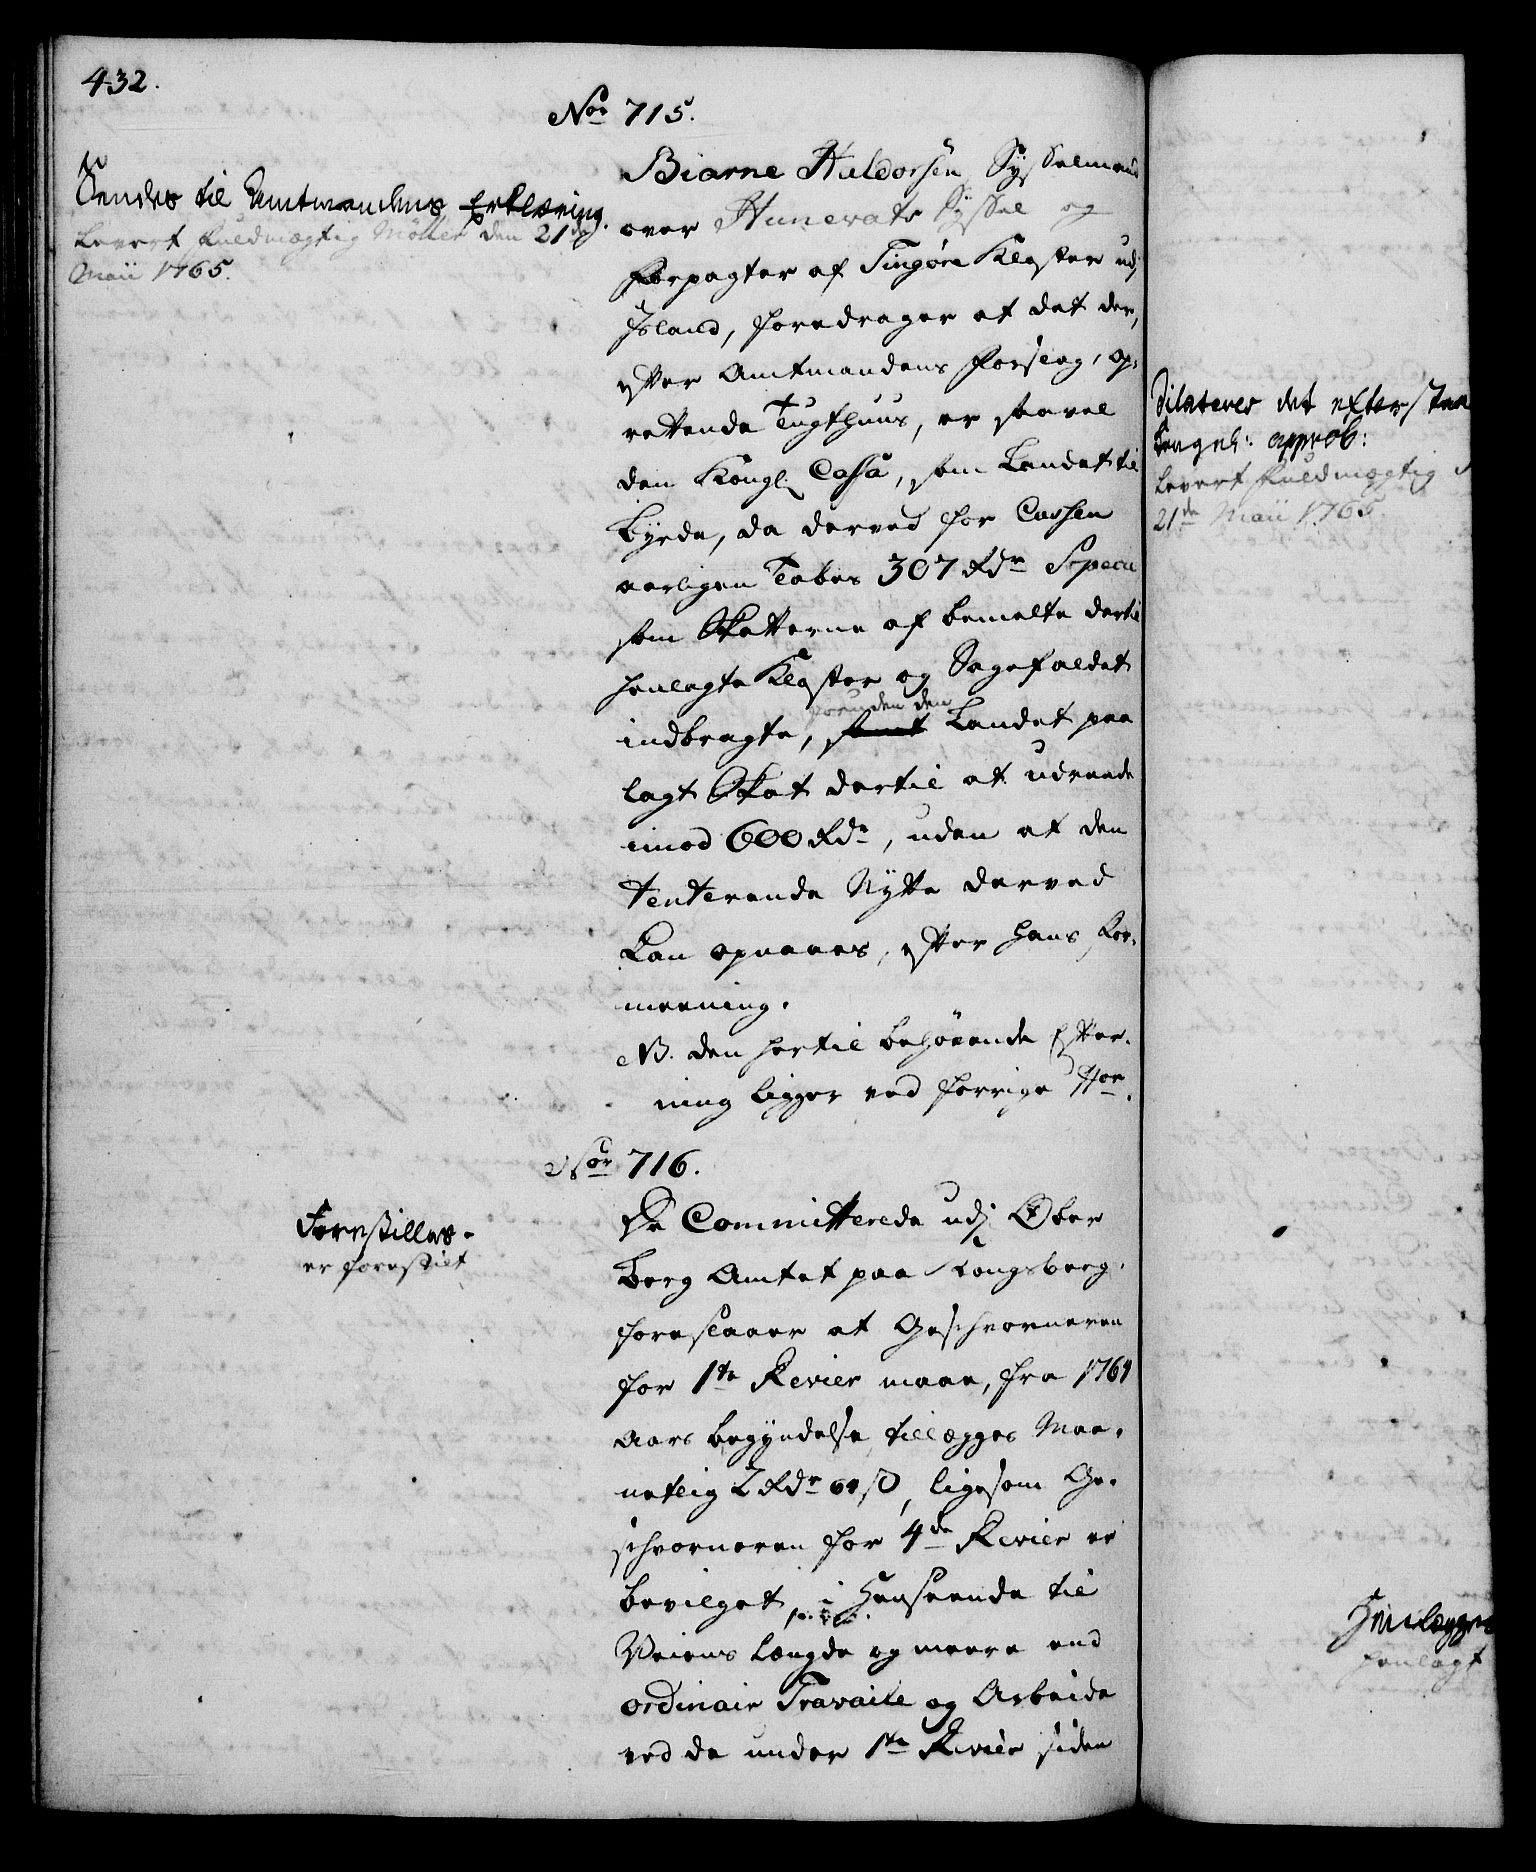 432.
Nor 715.
Sendes til Amtmandens Erklæring.
Levert Fuldmægtig Møller den 21de
Maii 1765.
Biarne Haldorsen Sysselmand
over Hunevats Syssel og
Forpagter af Tingøre Kloster udj
Island, foredrager at det der,
efter Amtmandens Forslag, op-
rettende Tugthuus, er saavel
den Kongl. Cassa, som Landet til
Byrde, da derved for Cassen
aarligen Tabes 307 Rdr Specie
som Skatterne af bemelte dertil
henlagte Kloster og Sagefaldet
indbragte, foruden den Landet paa
lagt Skat dertil at udreede
imod 600 Rdr, uden at den
tenterende Nytte derved
kan opnaaes, efter hans For-
meening.
NB. den hertil behørende Efter-
ning ligger ved forrige Nor.
Nor 716.
Forestilles.
er forestilt
De Committerede udj Ober
Berg Amtet paa Kongsberg,
foreslaaer at Geschvorneren
for 1te Revier maae, fra 1764
Aars begyndelse, tillægges Maa-
netlig 2 Rdr 64 s, ligesom Ge-
schvorneren for 4de Revier er
bevilget, i Henseende til
Veiens Længde og meere end
ordinair Travaile og Arbeide
ved de under 1te Revier siden
Dilateres det efterstaa
approb:
Levert Fuldmægtig
21de Maii 1765.
Henlægges
henlagt